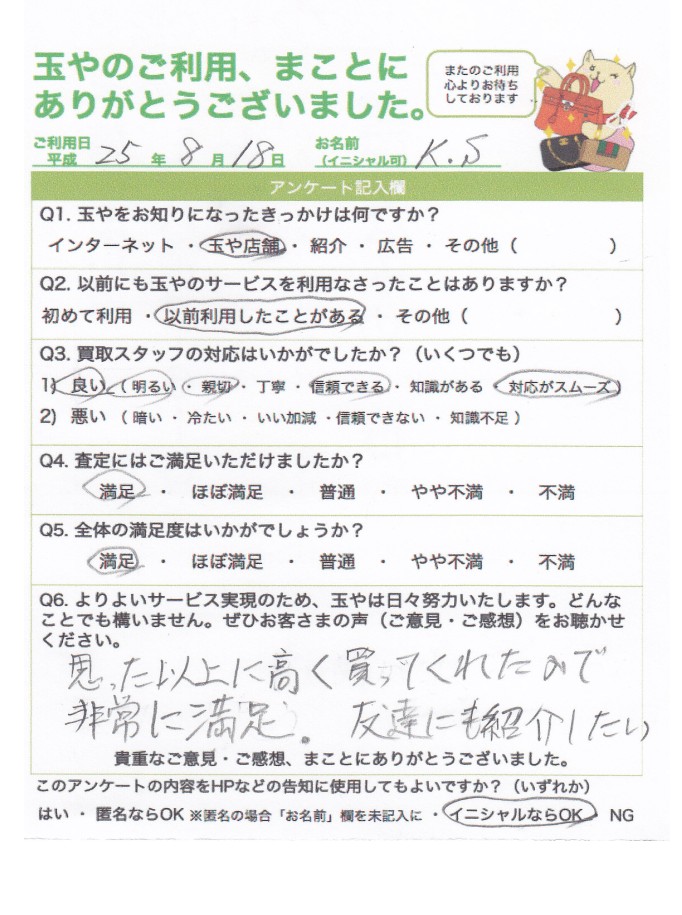 玉やのご利用、まことに
ありがとうございました。
またのご利用
心よりお待ち
しております
ご利用日
平成 25 年 8 月 18 日
お名前
(イニシャル可) K.S
アンケート記入欄
Q1. 玉やをお知りになったきっかけは何ですか？
インターネット ・ 玉や店舗 ・ 紹介 ・ 広告 ・ その他（ ）
Q2. 以前にも玉やのサービスを利用なさったことはありますか？
初めて利用 ・ 以前利用したことがある ・ その他（ ）
Q3. 買取スタッフの対応はいかがでしたか？（いくつでも）
1) 良い （ 明るい ・ 親切 ・ 丁寧 ・ 信頼できる ・ 知識がある ・ 対応がスムーズ ）
2) 悪い （ 暗い ・ 冷たい ・ いい加減 ・信頼できない ・ 知識不足 ）
Q4. 査定にはご満足いただけましたか？
満足 ・ ほぼ満足 ・ 普通 ・ やや不満 ・ 不満
Q5. 全体の満足度はいかがでしょうか？
満足 ・ ほぼ満足 ・ 普通 ・ やや不満 ・ 不満
Q6. よりよいサービス実現のため、玉やは日々努力いたします。どんな
ことでも構いません。ぜひお客さまの声（ご意見・ご感想）をお聴かせ
ください。
思った以上に高く買ってくれたので
非常に満足。 友達にも紹介したい
貴重なご意見・ご感想、まことにありがとうございました。
このアンケートの内容をHPなどの告知に使用してもよいですか？（いずれか）
はい ・ 匿名ならOK ※匿名の場合「お名前」欄を未記入に ・ イニシャルならOK ・ NG